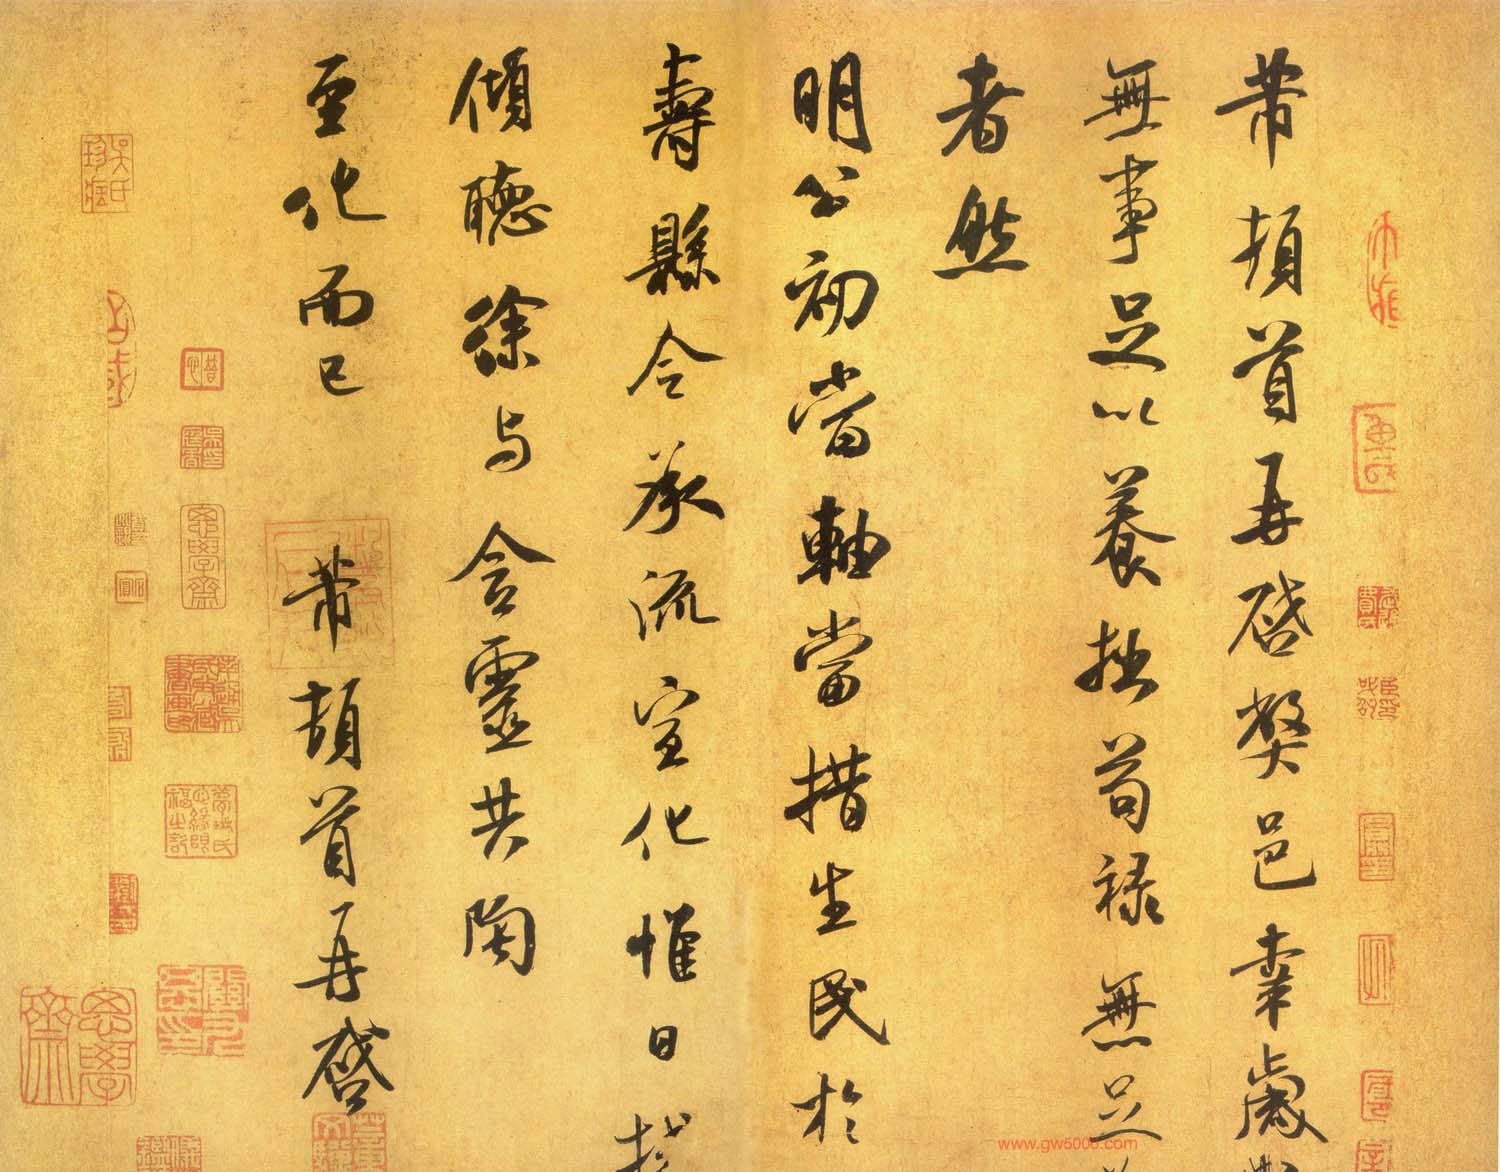 芾頓首再啓弊邑幸歲
無事足以養拙苟祿無足
者然
明公初當軸當措生民於
壽縣令承流宣化惟日
傾聽徐与含靈共陶
至化而已 芾頓首再啓
思學齋
思學齋